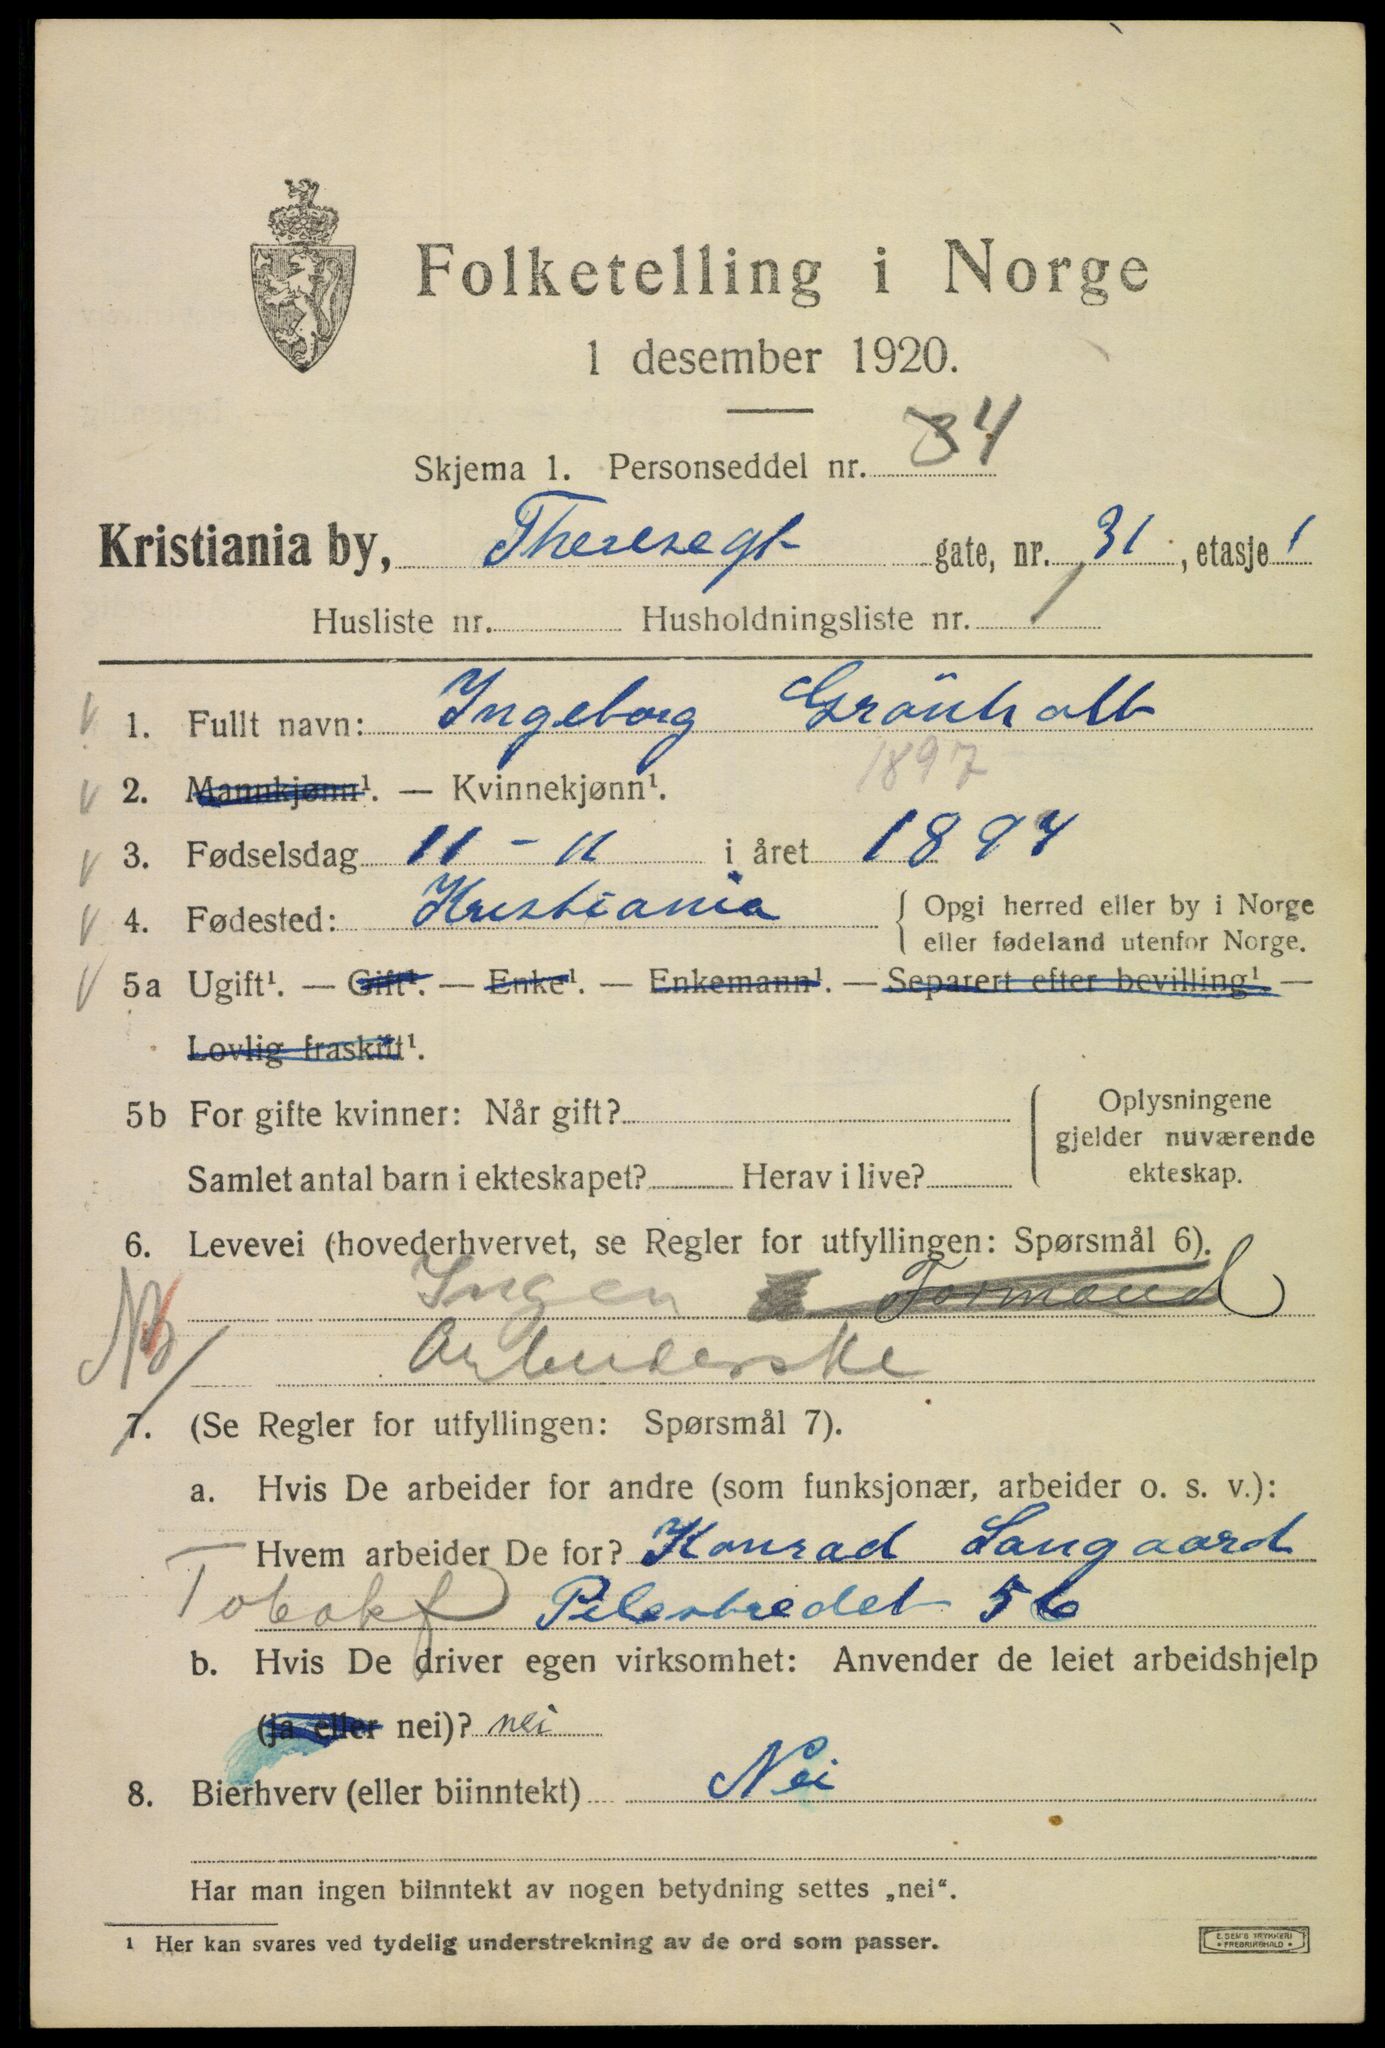 Folketelling i Norge
1 desember 1920.
Skjema 1. Personseddel nr. 84
Kristiania by, Theresegt gate, nr. 31, etasje 1
Husliste nr. Husholdningsliste nr. 1
1. Fullt navn: Ingeborg Grönholt
1897
2. Mannkjønn¹. — Kvinnekjønn¹.
3. Fødselsdag 11 - 11 i året 1897
4. Fødested: Kristiania { Opgi herred eller by i Norge
eller fødeland utenfor Norge.
5a Ugift¹. — Gift¹. — Enke¹. — Enkemann¹. — Separert efter bevilling¹. —
Lovlig fraskilt¹.
5b For gifte kvinner: Når gift? { Oplysningene
gjelder nuværende
ekteskap.
Samlet antal barn i ekteskapet? Herav i live?
6. Levevei (hovederhvervet, se Regler for utfyllingen: Spørsmål 6).
Ingen Formand
NB
Arbeiderske
7. (Se Regler for utfyllingen: Spørsmål 7).
a. Hvis De arbeider for andre (som funksjonær, arbeider o. s. v.):
Hvem arbeider De for? Konrad Langaard
Tobakf Pilestredet 56
b. Hvis De driver egen virksomhet: Anvender de leiet arbeidshjelp
(ja eller nei)? nei
8. Bierhverv (eller biinntekt) Nei
Har man ingen biinntekt av nogen betydning settes „nei“.
¹ Her kan svares ved tydelig understrekning av de ord som passer.
E. SEM'S TRYKKERI
• FREDRIKSHALD •